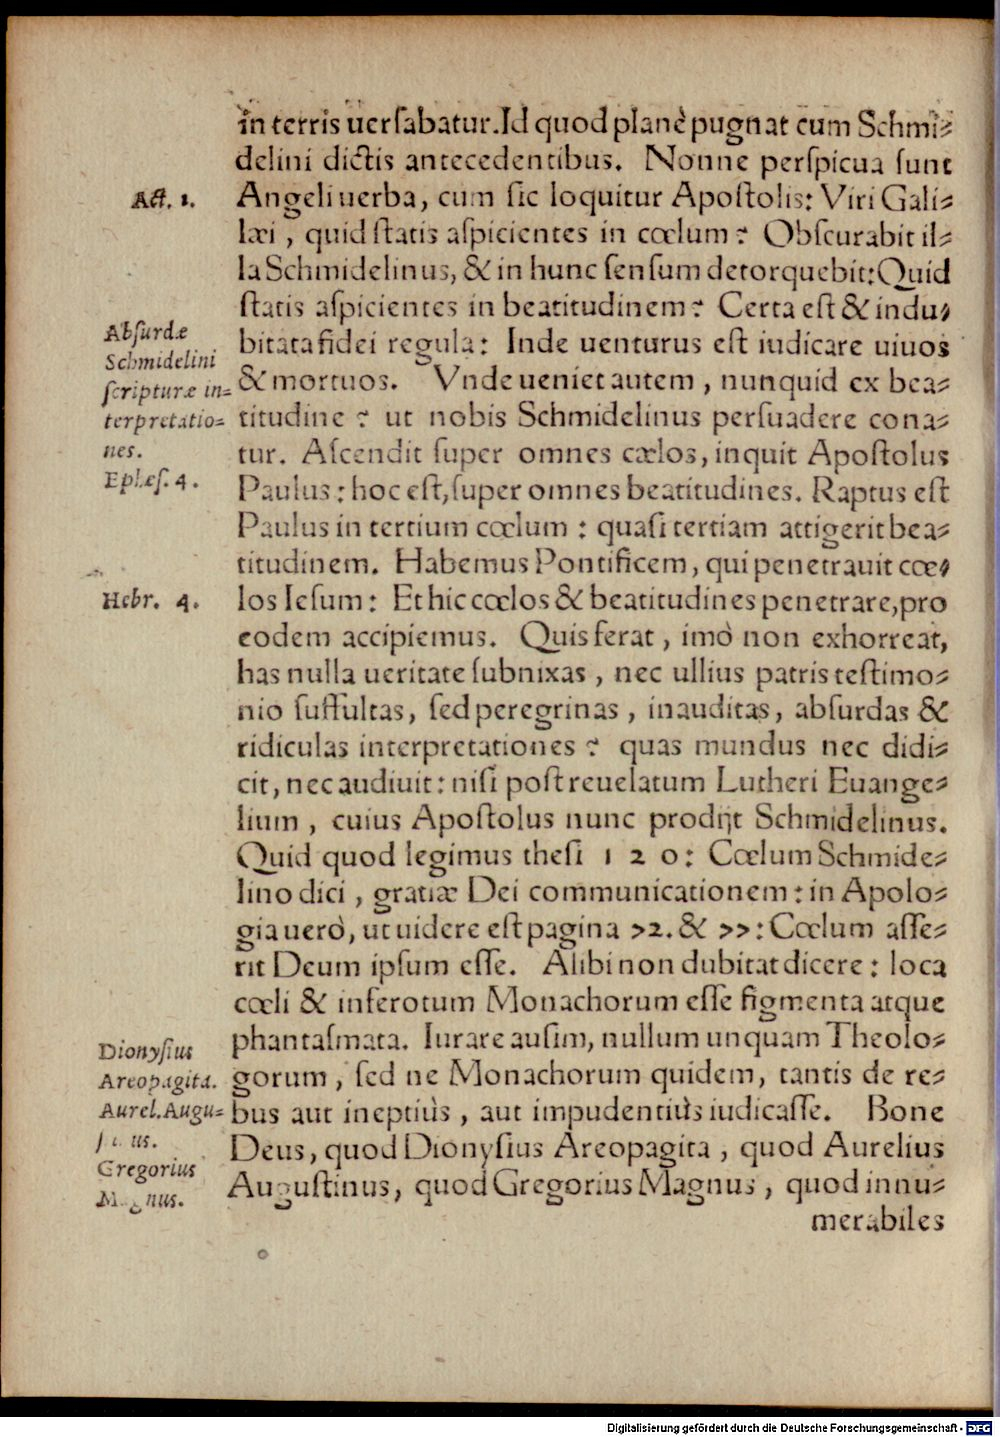 in terris uerſabatur. Id quod planè pugnat cum Schmi⸗
delini dictis antecedentibus. Nonne perſpicua ſunt
Act. 1.
Angeli uerba, cum ſic loquitur Apoſtolis: Viri Gali⸗
læi, quid ſtatis aſpicientes in cœlum? Obſcurabit il⸗
la Schmidelinus, & in hunc ſenſum detorquebit: Quid
ſtatis aſpicientes in beatitudinem? Certa eſt & indu⸗
Abſurdæ
Schmidelini
ſcripturæ in⸗
terpretatio⸗
nes.
bitata fidei regula: Inde uenturus eſt iudicare uiuos
& mortuos. Vnde ueniet autem, nunquid ex bea⸗
titudine? ut nobis Schmidelinus perſuadere cona⸗
tur. Aſcendit ſuper omnes cœlos, inquit Apoſtolus
Epheſ. 4.
Paulus: hoc eſt, ſuper omnes beatitudines. Raptus eſt
Paulus in tertium cœlum: quaſi tertiam attigerit bea⸗
titudinem. Habemus Pontificem, qui penetrauit cœ⸗
Hebr. 4.
los Ieſum: Et hic cœlos & beatitudines penetrare, pro
eodem accipiemus. Quis ferat, imò non exhorreat,
has nulla ueritate ſubnixas, nec ullius patris teſtimo⸗
nio ſuffultas, ſed peregrinas, inauditas, abſurdas &
ridiculas interpretationes? quas mundus nec didi⸗
cit, nec audiuit: niſi poſt reuelatum Lutheri Euange⸗
lium, cuius Apoſtolus nunc prodijt Schmidelinus.
Quid quod legimus theſi 120: Cœlum Schmide⸗
lino dici, gratiæ Dei communicationem: in Apolo⸗
gia uerò, ut uidere eſt pagina 72. & 77: Cœlum aſſe⸗
rit Deum ipſum eſſe. Alibi non dubitat dicere: loca
cœli & inferorum Monachorum eſſe figmenta atque
phantaſmata. Iurare auſim, nullum unquam Theolo⸗
gorum, ſed ne Monachorum quidem, tantis de re⸗
bus aut ineptiùs, aut impudentiùs iudicaſſe. Bone
Dionyſius
Areopagita.
Aurel. Augu⸗
ſtinus.
Gregorius
Magnus.
Deus, quod Dionyſius Areopagita, quod Aurelius
Auguſtinus, quod Gregorius Magnus, quod innu⸗
merabiles
Digitalisierung gefördert durch die Deutsche Forschungsgemeinschaft - DFG